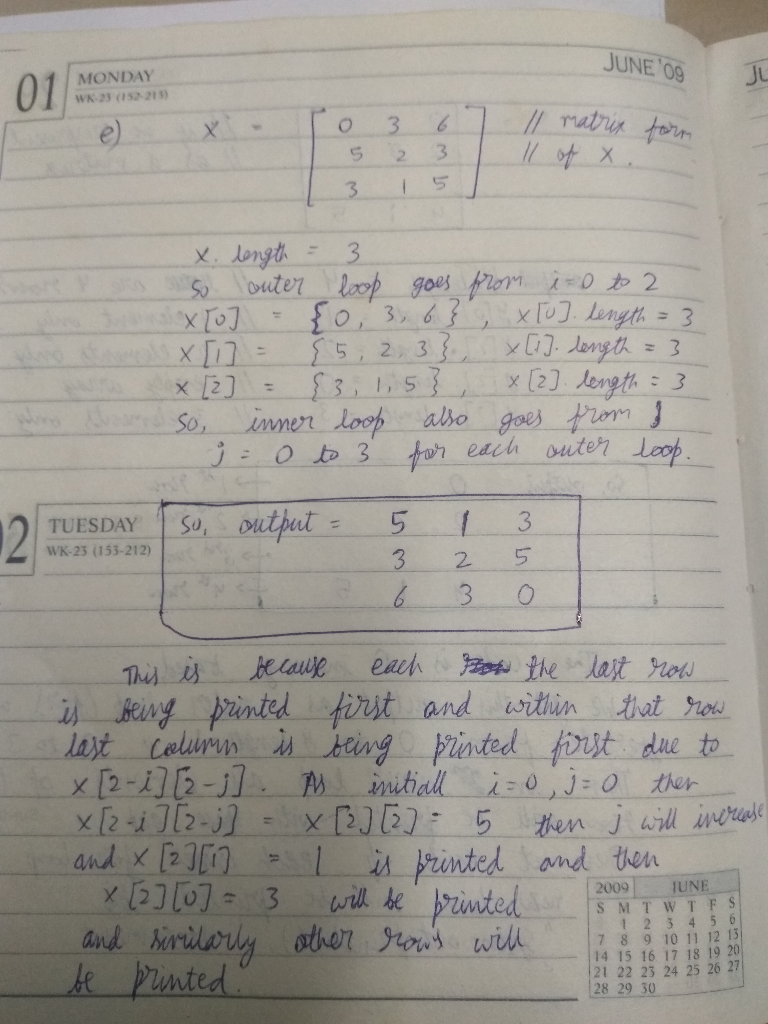 JUNE '09
JU
01 MONDAY
WK-23 (152-213)
e) X = [ 0 3 6 // matrix form
5 2 3 // of X.
3 1 5 ]
X. length = 3
So outer loop goes from i=0 to 2
X[0] = {0, 3, 6}, X[0]. length = 3
X[1] = {5, 2, 3}, X[1]. length = 3
X[2] = {3, 1, 5}, X[2]. length = 3
So, inner loop also goes from
j = 0 to 3 for each outer loop.
02 TUESDAY
WK-23 (153-212)
So, output = 5 1 3
3 2 5
6 3 0
This is because each the last row
is being printed first and within that row
last column is being printed first due to
X[2-i][2-j]. As initiall i=0, j=0 then
X[2-i][2-j] = X[2][2] = 5 then j will increase
and X[2][1] = 1 is printed and then
X[2][0] = 3 will be printed
and similarly other rows will
be printed.
2009 JUNE
S M T W T F S
1 2 3 4 5 6
7 8 9 10 11 12 13
14 15 16 17 18 19 20
21 22 23 24 25 26 27
28 29 30